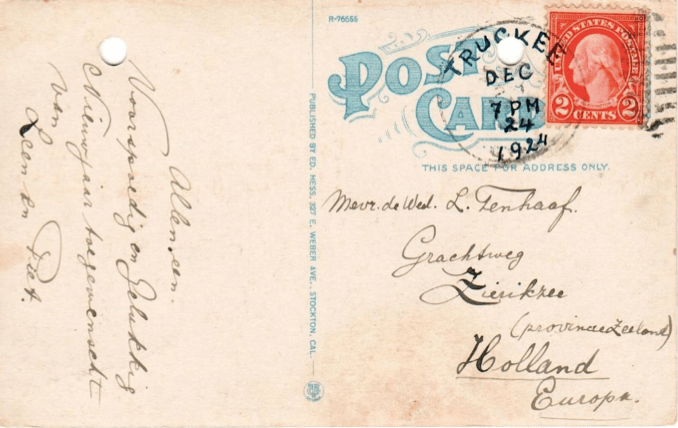 R-76656
POST
CARD
THIS SPACE FOR ADDRESS ONLY.
TRUCKEE
DEC
7 PM
24
1924
UNITED STATES POSTAGE
2 CENTS 2
Allen een
Voorspoedig en Gelukkig
Nieuwjaar toegewenscht
van
Leen en Piet.
PUBLISHED BY ED. HESS, 327 E. WEBER AVE., STOCKTON, CAL.
Mevr. de Wed. L. Tenhaaf.
Grachtweg
Zierikzee
(provincie Zeeland)
Holland
Europa.